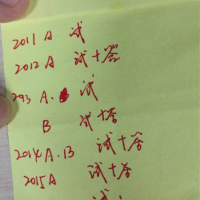 2011 A 试
2012 A 试+答
2013 A. 试
B 试+答
2014 A.B 试+答
2015 A 试+答